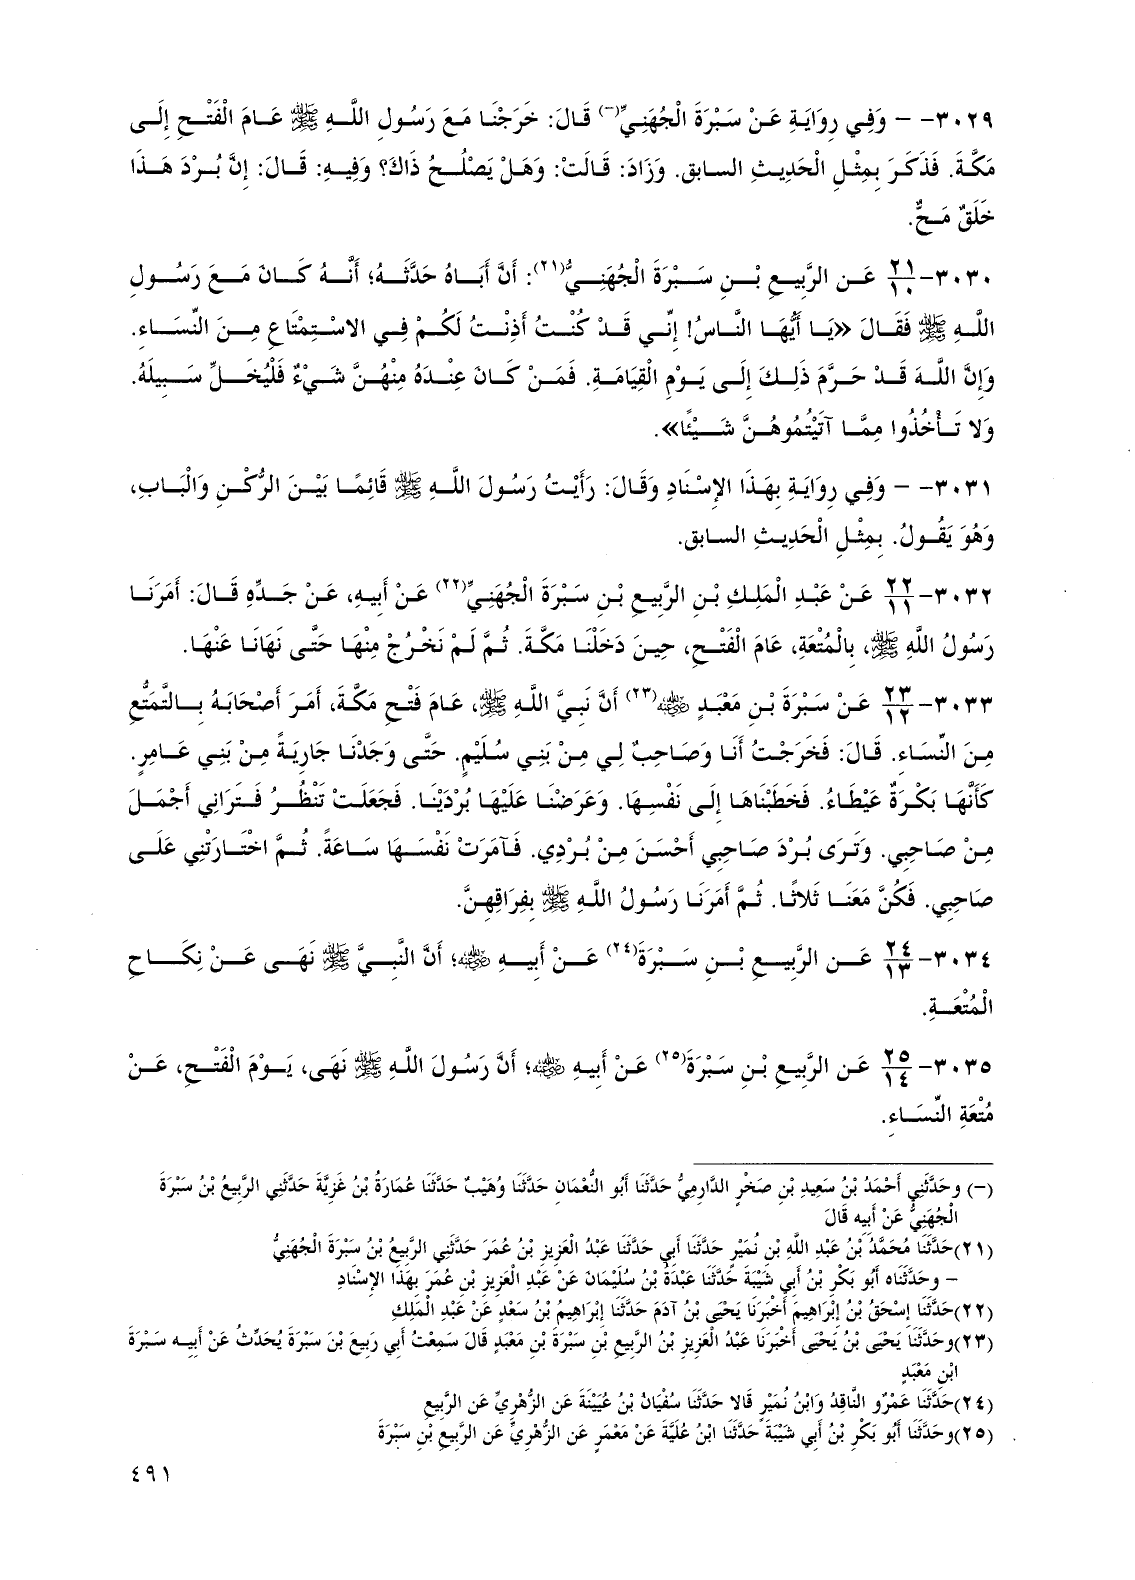 ٣٠٢٩- – وَفِي رِوَايَةٍ عَنْ سَبْرَةَ الْجُهَنِيِّ(-) قَالَ: خَرَجْنَا مَعَ رَسُولِ اللَّهِ ﷺ عَامَ الْفَتْحِ إِلَى
مَكَّةَ. فَذَكَرَ بِمِثْلِ الْحَدِيثِ السابق. وَزَادَ: قَالَتْ: وَهَلْ يَصْلُحُ ذَاكَ؟ وَفِيهِ: قَالَ: إِنَّ بُرْدَ هَذَا
خَلَقٌ مَحٌّ.
٣٠٣٠- ٢١/١٠ عَنِ الرَّبِيعِ بْنِ سَبْرَةَ الْجُهَنِيُّ(٢١): أَنَّ أَبَاهُ حَدَّثَهُ؛ أَنَّهُ كَانَ مَعَ رَسُولِ
اللَّهِ ﷺ فَقَالَ «يَا أَيُّهَا النَّاسُ! إِنِّي قَدْ كُنْتُ أَذِنْتُ لَكُمْ فِي الاسْتِمْتَاعِ مِنَ النِّسَاءِ.
وَإِنَّ اللَّهَ قَدْ حَرَّمَ ذَلِكَ إِلَى يَوْمِ الْقِيَامَةِ. فَمَنْ كَانَ عِنْدَهُ مِنْهُنَّ شَيْءٌ فَلْيُخَلِّ سَبِيلَهُ.
وَلا تَأْخُذُوا مِمَّا آتَيْتُمُوهُنَّ شَيْئًا».
٣٠٣١- – وَفِي رِوَايَةٍ بِهَذَا الإِسْنَادِ وَقَالَ: رَأَيْتُ رَسُولَ اللَّهِ ﷺ قَائِمًا بَيْنَ الرُّكْنِ وَالْبَابِ،
وَهُوَ يَقُولُ. بِمِثْلِ الْحَدِيثِ السابق.
٣٠٣٢- ٢٢/١١ عَنْ عَبْدِ الْمَلِكِ بْنِ الرَّبِيعِ بْنِ سَبْرَةَ الْجُهَنِيِّ(٢٢) عَنْ أَبِيهِ، عَنْ جَدِّهِ قَالَ: أَمَرَنَا
رَسُولُ اللَّهِ ﷺ، بِالْمُتْعَةِ، عَامَ الْفَتْحِ، حِينَ دَخَلْنَا مَكَّةَ. ثُمَّ لَمْ نَخْرُجْ مِنْهَا حَتَّى نَهَانَا عَنْهَا.
٣٠٣٣- ٢٣/١٢ عَنْ سَبْرَةَ بْنِ مَعْبَدٍ ﵁(٢٣) أَنَّ نَبِيَّ اللَّهِ ﷺ، عَامَ فَتْحِ مَكَّةَ، أَمَرَ أَصْحَابَهُ بِالتَّمَتُّعِ
مِنَ النِّسَاءِ. قَالَ: فَخَرَجْتُ أَنَا وَصَاحِبٌ لِي مِنْ بَنِي سُلَيْمٍ. حَتَّى وَجَدْنَا جَارِيَةً مِنْ بَنِي عَامِرٍ.
كَأَنَّهَا بَكْرَةٌ عَيْطَاءُ. فَخَطَبْنَاهَا إِلَى نَفْسِهَا. وَعَرَضْنَا عَلَيْهَا بُرْدَيْنَا. فَجَعَلَتْ تَنْظُرُ فَتَرَانِي أَجْمَلَ
مِنْ صَاحِبِي. وَتَرَى بُرْدَ صَاحِبِي أَحْسَنَ مِنْ بُرْدِي. فَآمَرَتْ نَفْسَهَا سَاعَةً. ثُمَّ اخْتَارَتْنِي عَلَى
صَاحِبِي. فَكُنَّ مَعَنَا ثَلاثًا. ثُمَّ أَمَرَنَا رَسُولُ اللَّهِ ﷺ بِفِرَاقِهِنَّ.
٣٠٣٤- ٢٤/١٣ عَنِ الرَّبِيعِ بْنِ سَبْرَةَ(٢٤) عَنْ أَبِيهِ ﵁؛ أَنَّ النَّبِيَّ ﷺ نَهَى عَنْ نِكَاحِ
الْمُتْعَةِ.
٣٠٣٥- ٢٥/١٤ عَنِ الرَّبِيعِ بْنِ سَبْرَةَ(٢٥) عَنْ أَبِيهِ ﵁؛ أَنَّ رَسُولَ اللَّهِ ﷺ نَهَى، يَوْمَ الْفَتْحِ، عَنْ
مُتْعَةِ النِّسَاءِ.
(-) وحَدَّثَنِي أَحْمَدُ بْنُ سَعِيدِ بْنِ صَخْرٍ الدَّارِمِيُّ حَدَّثَنَا أَبُو النُّعْمَانِ حَدَّثَنَا وُهَيْبٌ حَدَّثَنَا عُمَارَةُ بْنُ غَزِيَّةَ حَدَّثَنِي الرَّبِيعُ بْنُ سَبْرَةَ
الْجُهَنِيُّ عَنْ أَبِيهِ قَالَ
(٢١)حَدَّثَنَا مُحَمَّدُ بْنُ عَبْدِ اللَّهِ بْنِ نُمَيْرٍ حَدَّثَنَا أَبِي حَدَّثَنَا عَبْدُ الْعَزِيزِ بْنُ عُمَرَ حَدَّثَنِي الرَّبِيعُ بْنُ سَبْرَةَ الْجُهَنِيُّ
– وحَدَّثَنَاه أَبُو بَكْرِ بْنُ أَبِي شَيْبَةَ حَدَّثَنَا عَبْدَةُ بْنُ سُلَيْمَانَ عَنْ عَبْدِ الْعَزِيزِ بْنِ عُمَرَ بِهَذَا الإِسْنَادِ
(٢٢)حَدَّثَنَا إِسْحَقُ بْنُ إِبْرَاهِيمَ أَخْبَرَنَا يَحْيَى بْنُ آدَمَ حَدَّثَنَا إِبْرَاهِيمُ بْنُ سَعْدٍ عَنْ عَبْدِ الْمَلِكِ
(٢٣)وحَدَّثَنَا يَحْيَى بْنُ يَحْيَى أَخْبَرَنَا عَبْدُ الْعَزِيزِ بْنُ الرَّبِيعِ بْنِ سَبْرَةَ بْنِ مَعْبَدٍ قَالَ سَمِعْتُ أَبِي رَبِيعَ بْنَ سَبْرَةَ يُحَدِّثُ عَنْ أَبِيهِ سَبْرَةَ
ابْنِ مَعْبَدٍ
(٢٤)حَدَّثَنَا عَمْرٌو النَّاقِدُ وَابْنُ نُمَيْرٍ قَالا حَدَّثَنَا سُفْيَانُ بْنُ عُيَيْنَةَ عَنِ الزُّهْرِيِّ عَنِ الرَّبِيعِ
(٢٥)وحَدَّثَنَا أَبُو بَكْرِ بْنُ أَبِي شَيْبَةَ حَدَّثَنَا ابْنُ عُلَيَّةَ عَنْ مَعْمَرٍ عَنِ الزُّهْرِيِّ عَنِ الرَّبِيعِ بْنِ سَبْرَةَ
٤٩١